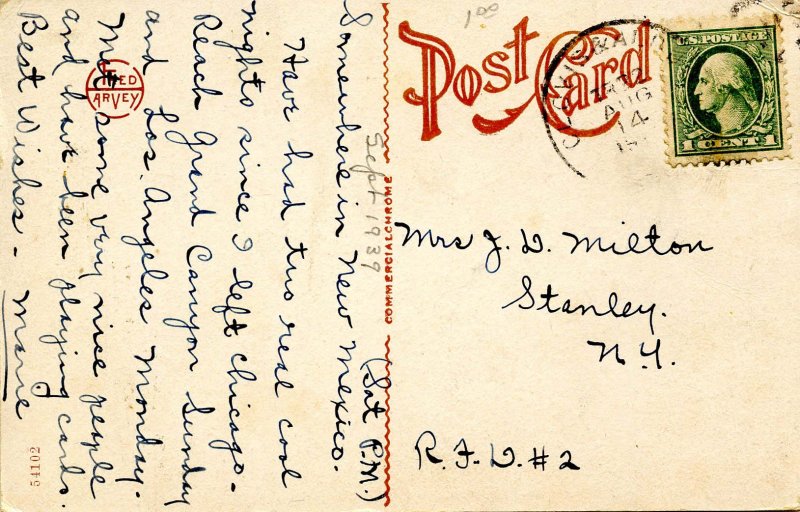 Somewhere in New Mexico.
(Sat P.M.)
Have had two real cool
nights since I left Chicago.
Reach Grand Canyon Sunday
and Los. Angeles Monday.
Met some very nice people
and have been playing cards.
Best Wishes - Marie
FRED
HARVEY
54102
Sept 1939
COMMERCIALCHROME
1.00
Post Card
AUG
14
U.S. POSTAGE
1 CENT 1
Mrs J. D. Milton
Stanley.
N.Y.
R.F.D. #2